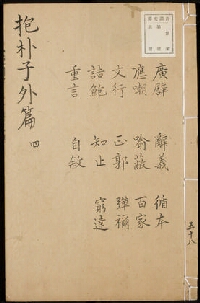 廣譬 辭義 循本
應嘲 喻蔽 百家
文行 正郭 彈禰
詰鮑 知止 窮達
重言 自敘
抱朴子外篇 四
五十八